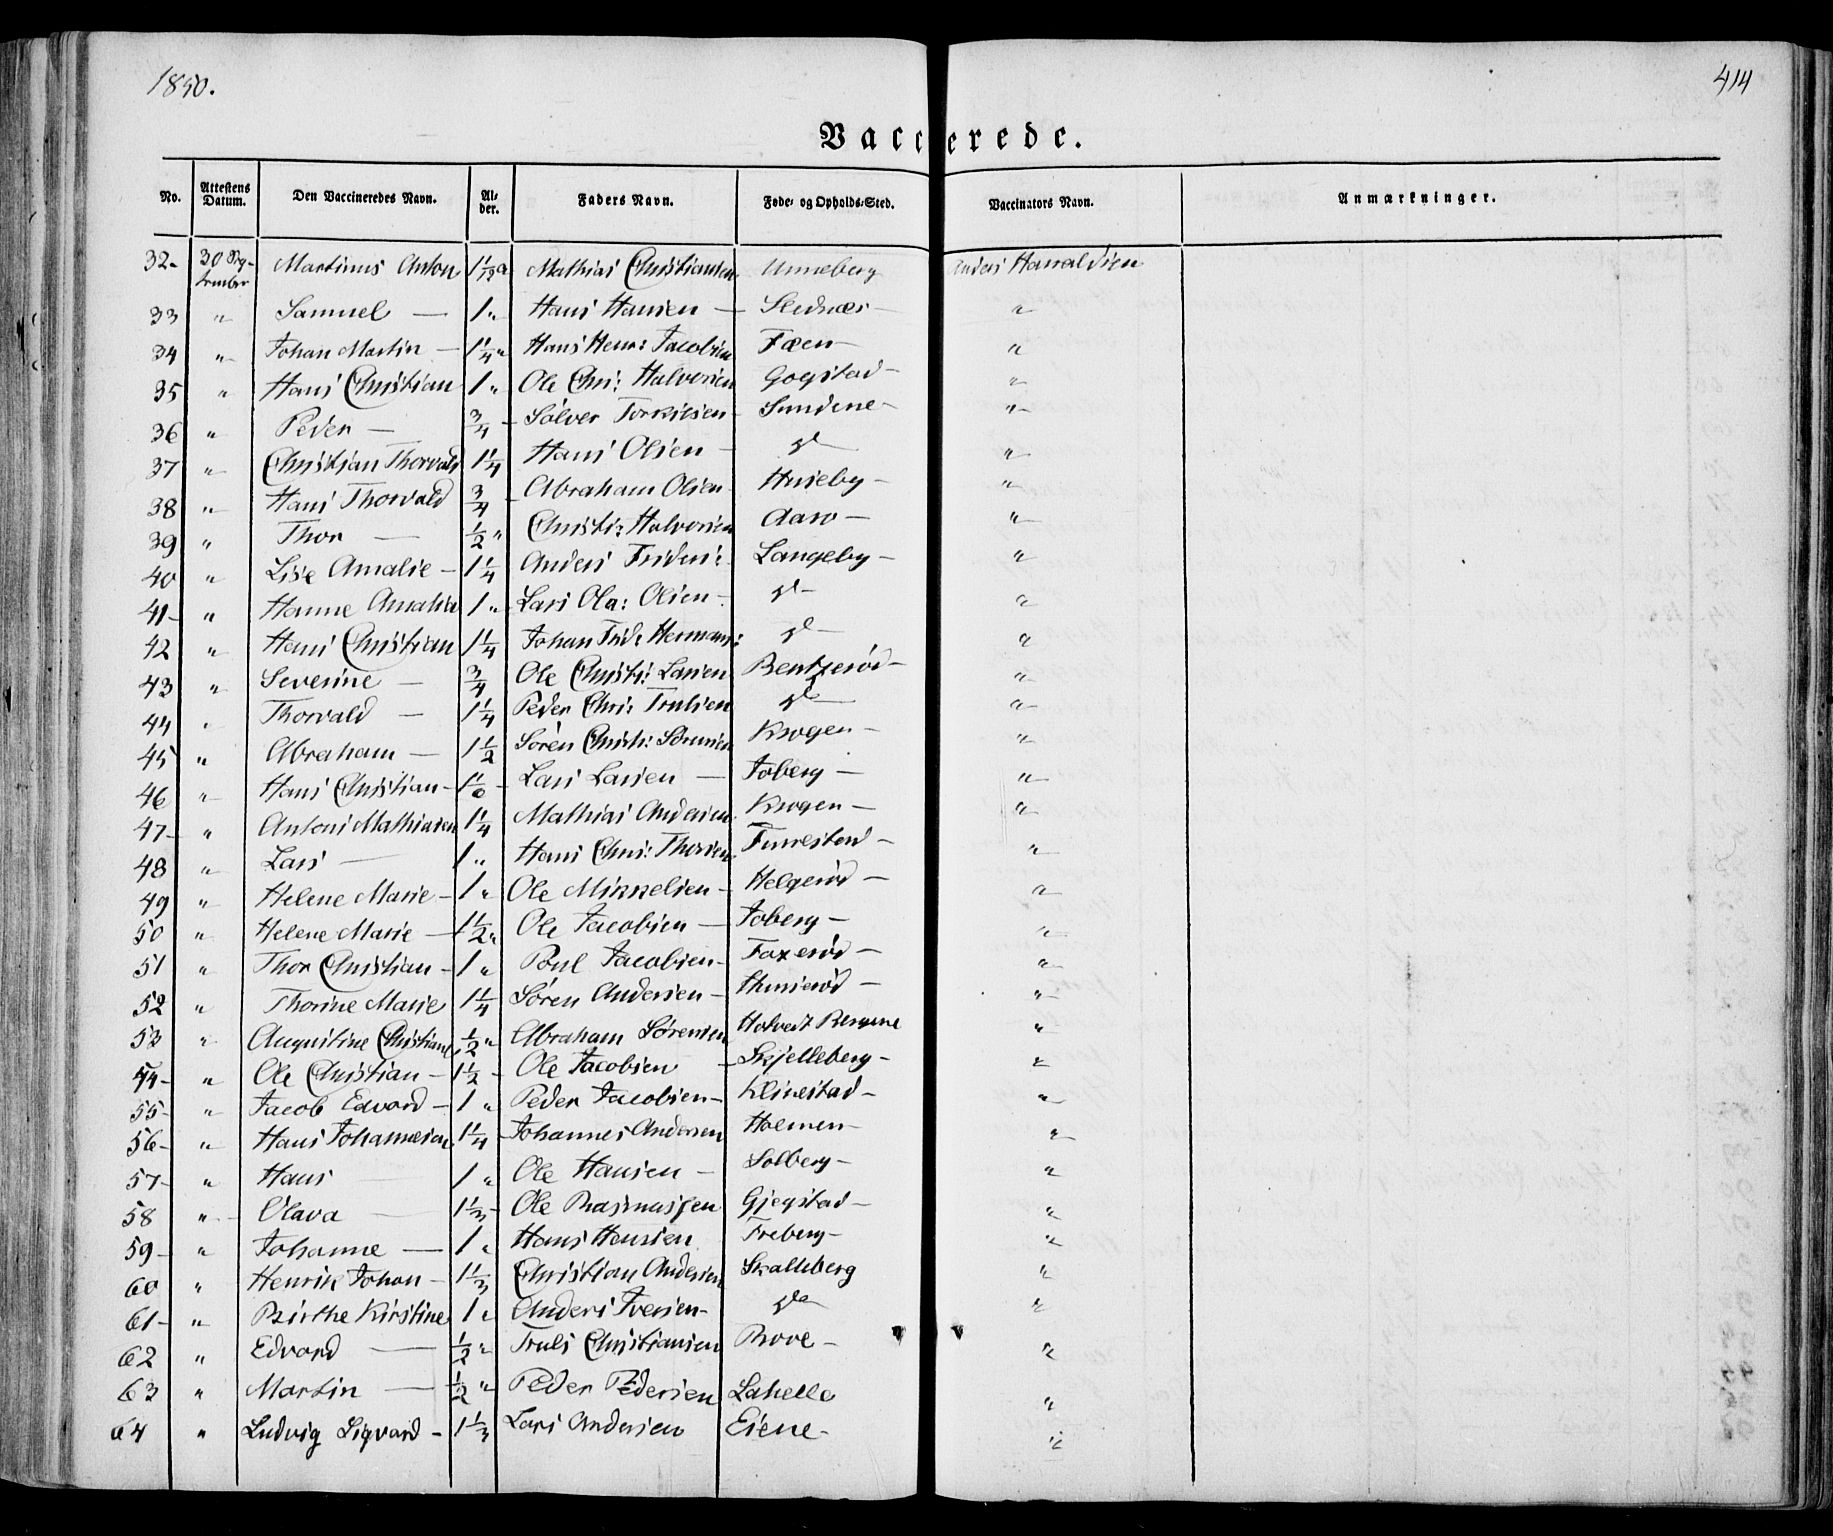 1850.
414
Vaccinerede.
No. Attestens Datum. Den Vaccineredes Navn. Alder. Faders Navn. Føde- og Opholds-Sted. Vaccinators Navn. Anmærkninger.
32- 30 Sep-tember Martinus Anton Mathias Christiansen Unneberg Anders Haraldsen
33 " Samuel — 1 " Hans Hansen — —
34 " Johan Martin — 1 1/4 " Hans Henr: Jacobsen Fæen — "
35 " Hans Christian 1 " Ole Chr: Halvorsen Gogstad — "
36 " Peder — 3/4 — Sölver Torkilsen — Sundene — "
37 " Christian Thorvald 1 1/4 Hans Olsen — do — "
38 " Hans Thorvald 3/4 — Abraham Olsen — Huseby — "
39 " Thor — 1/2 " Christ: Halvorsen Aarø — "
40 " Lise Amalie — 1 1/4 Anders Frider: Langeby — "
41- " Hanne Amalia 1 " Lars Ola: Olsen — do — "
42 " Hans Christian 1 1/4 Johan Frid: Hermans: do — "
43 " Severine — 3/4 Ole Christ: Larsen Bentserød — "
44 " Thorvald — 1 1/4 Peder Chr: Trulsen do — "
45 " Abraham — 1 1/2 Sören Christ: Krogen — "
46 " Hans Christian — 1 1/6 — Lars Larsen — Joberg — "
47- " Antoni Mathiasen 1 1/4 Mathias Andersen Krogen — "
48 " Lars — 1 " Hans Chr: Thorsen Furrestad — "
49 " Helene Marie — 1 " Ole Mikkelsen — Helgerød — "
50 " Helene Marie — 1 1/2 " Ole Jacobsen — Joberg — "
51 " Thor Christian — 1 " Poul Jacobsen — Foxerød — "
52 " Thorine Marie 1 1/4 Søren Andersen — — "
53 " Augustine Christiane 1/2 " Abraham Sørensen "
54- " Ole Christian — 1 1/2 — Ole Jacobsen — Skjelleberg — "
55- " Jacob Edvard — 1 " Peder Jacobsen — Klinestad — "
56- " Hans Johannesen 1 1/4 — Johannes Andersen Holmen — "
57- " Hans — 1 " Ole Hansen — Solberg — "
58 " — Olava — 1 1/3 — Ole Rasmussen Gjegstad — "
59- " Johanne — 1 " Hans Hansen Freberg — "
60 " Henrik Johan — 1 1/3 Christian Andersen Skalleberg "
61- " Birthe Kirstine 1 " Anders Iversen — do "
62 " Edvard — 1/2 " Truls Christiansen Rove — "
63 " Martin — 1/2 " Peder Pedersen Lahelle "
64 " Ludvig Sigvard — 1 1/3 Lars Andersen Eiene — "